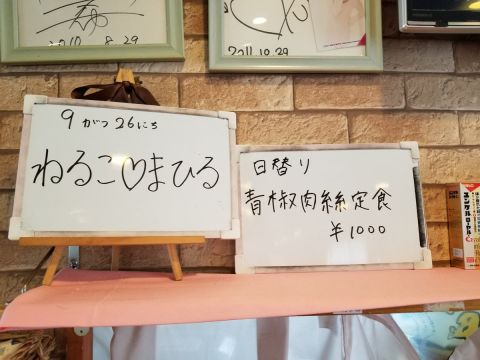 2010 8.29
2011.10.29
9がつ26にち
ねるこ♡まひる
日替り
青椒肉絲定食
¥1000
ユンケルローヤル